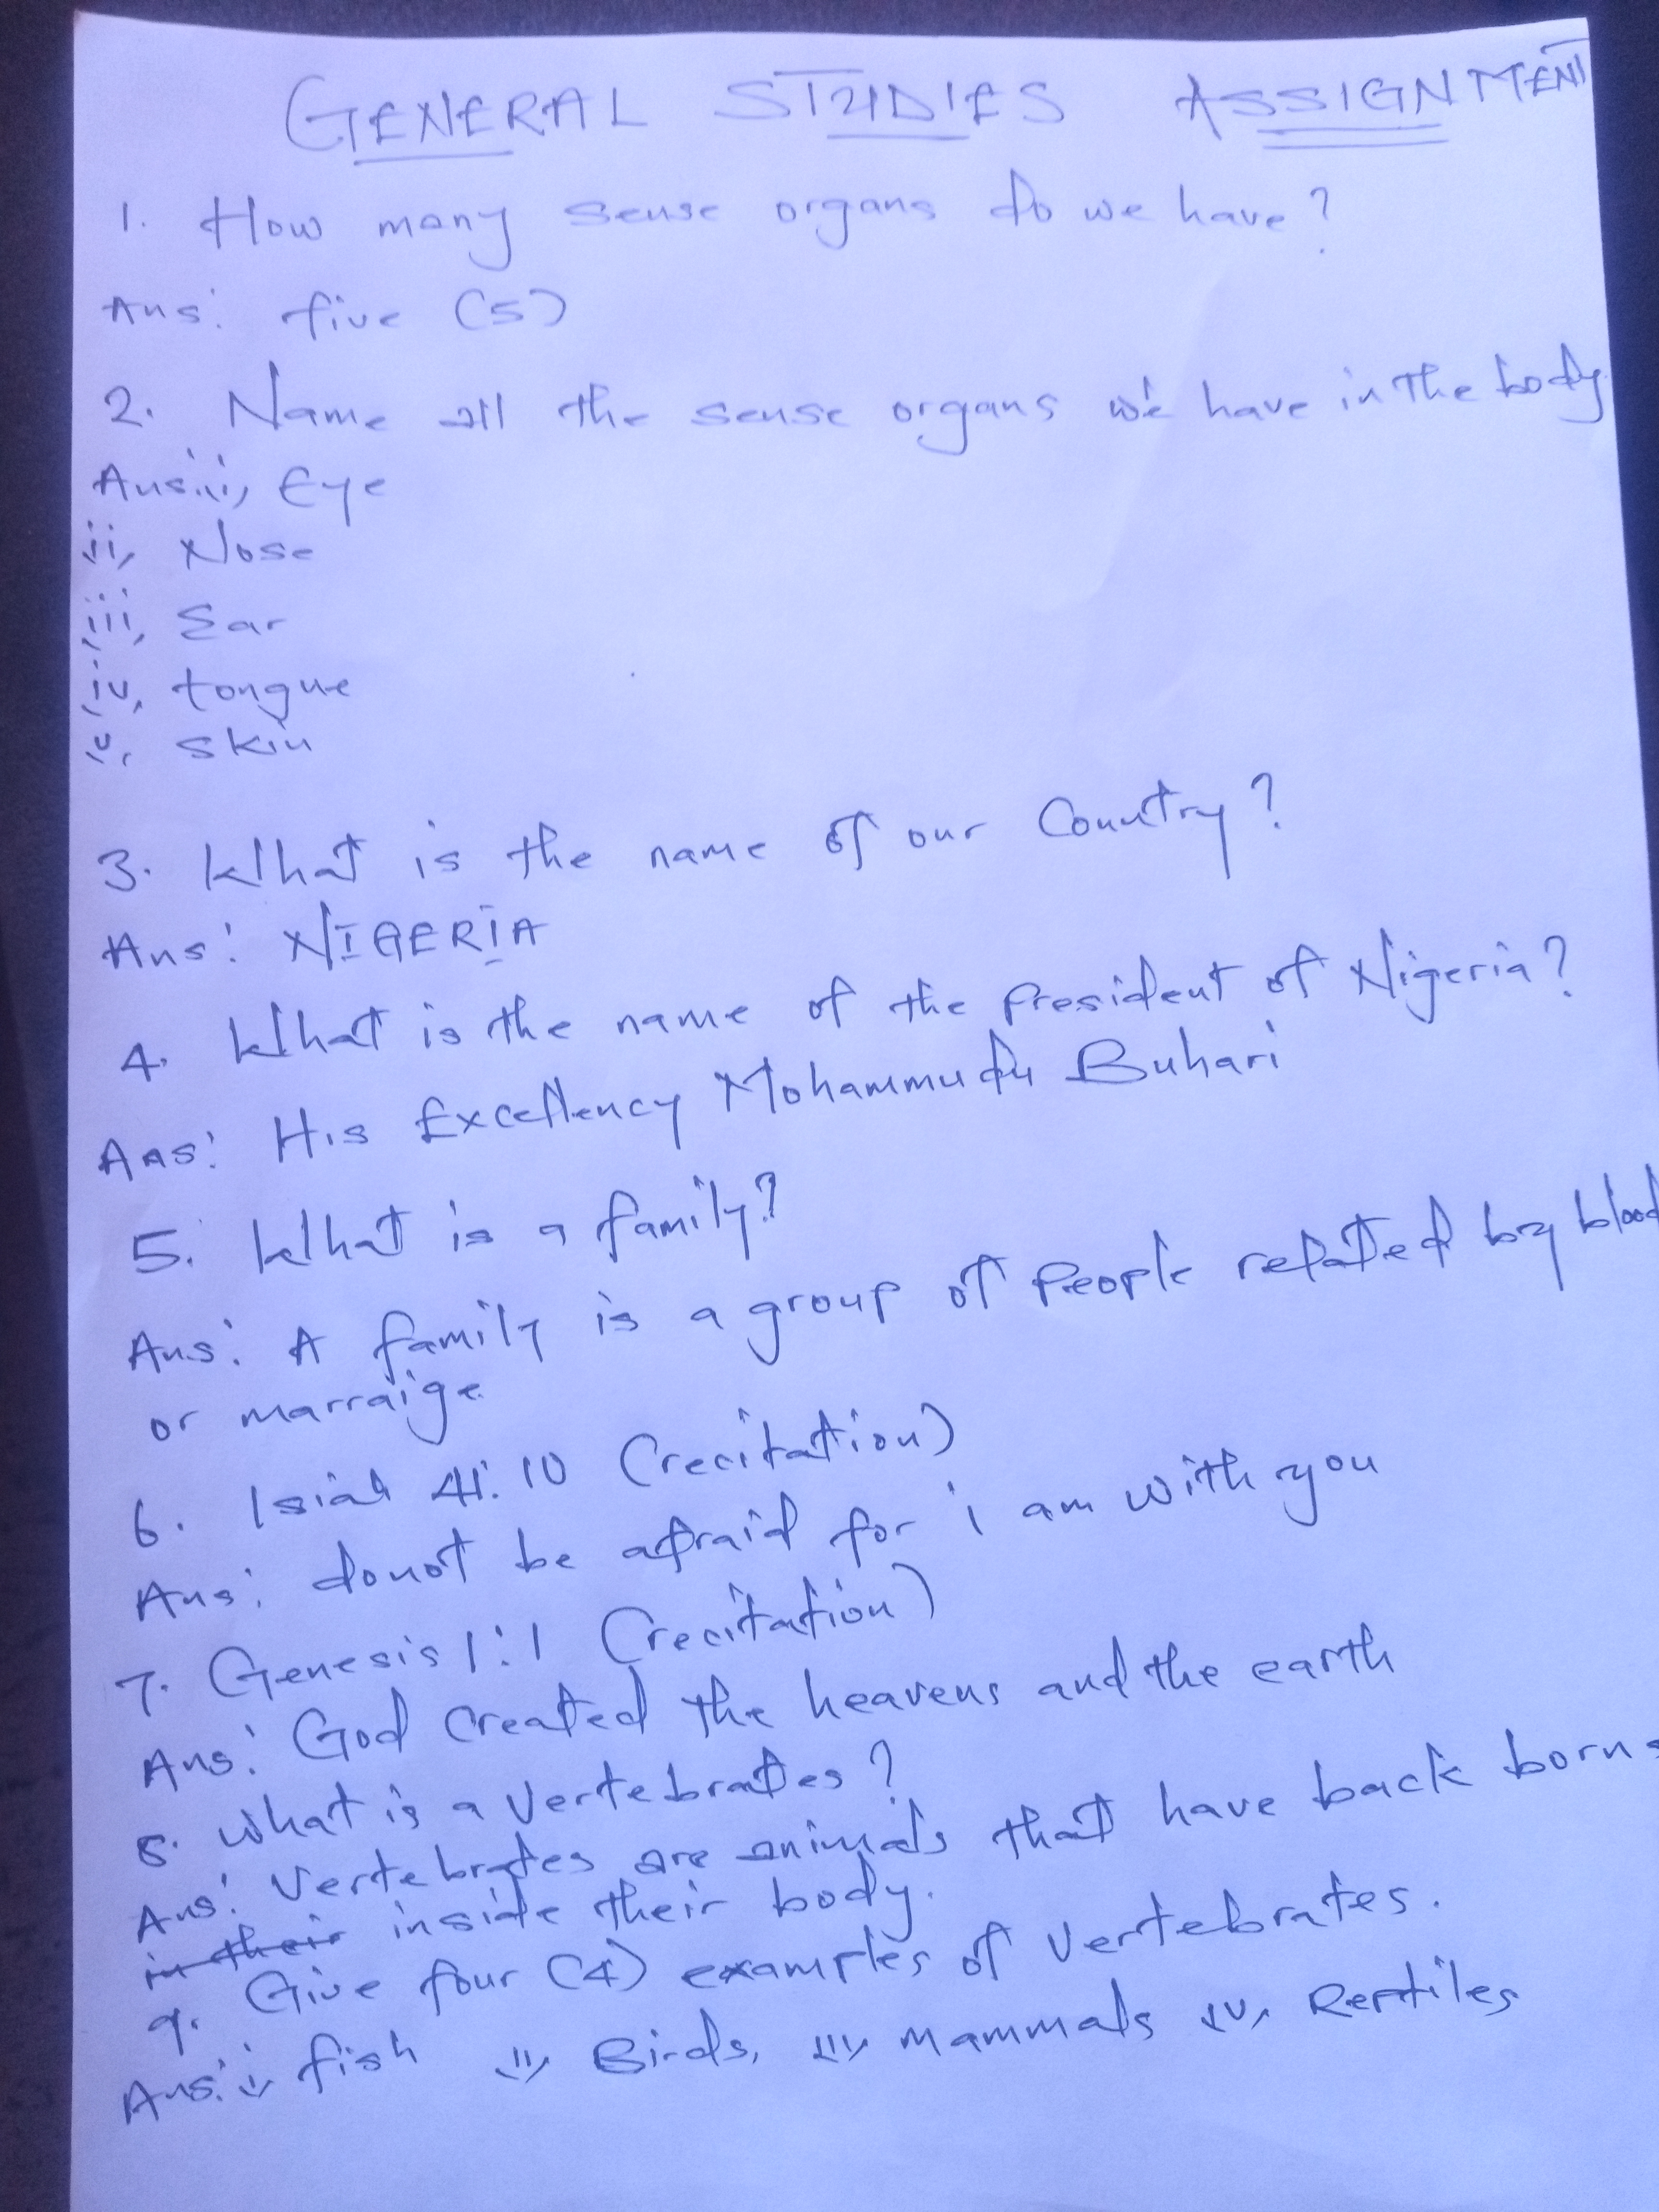 GENERAL STUDIES ASSIGNMENT
1. How many sense organs do we have?
Ans: five (5)
2. Name all the sense organs we have in the body.
Ans: i, Eye
ii, Nose
iii, Ear
iv, tongue
v, skin
3. What is the name of our Country?
Ans: NIGERIA
4. What is the name of the president of Nigeria?
Ans: His Excellency Mohammudu Buhari
5. What is a family?
Ans: A family is a group of people related by blood
or marraige
6. Isiah 41:10 (recitation)
Ans: donot be afraid for i am with you
7. Genesis 1:1 (recitation)
Ans: God created the heavens and the earth
8. What is a vertebrates?
Ans: Vertebrates are animals that have back borns
in their inside their body.
9. Give four (4) examples of vertebrates.
Ans: i, fish ii, Birds, iii, Mammals iv, Reptiles